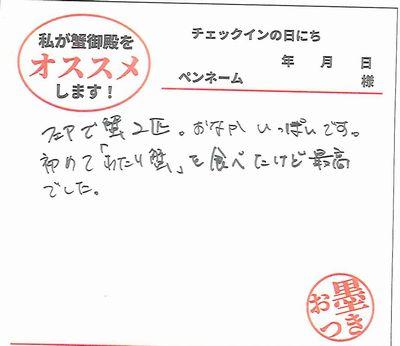 私が蟹御殿を
オススメ
します！
チェックインの日にち
年 月 日
ペンネーム 様
フェアで蟹2匹。おなかいっぱいです。
初めて「わたり蟹」を食べたけど最高
でした。
お墨
つき